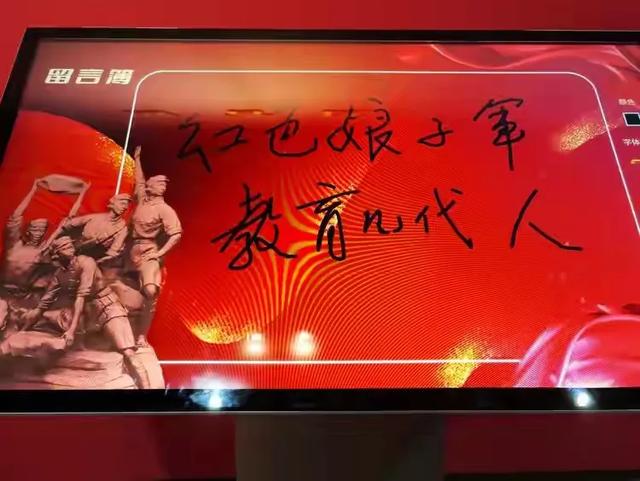 留言簿
颜色
字体
红色娘子军
教育几代人